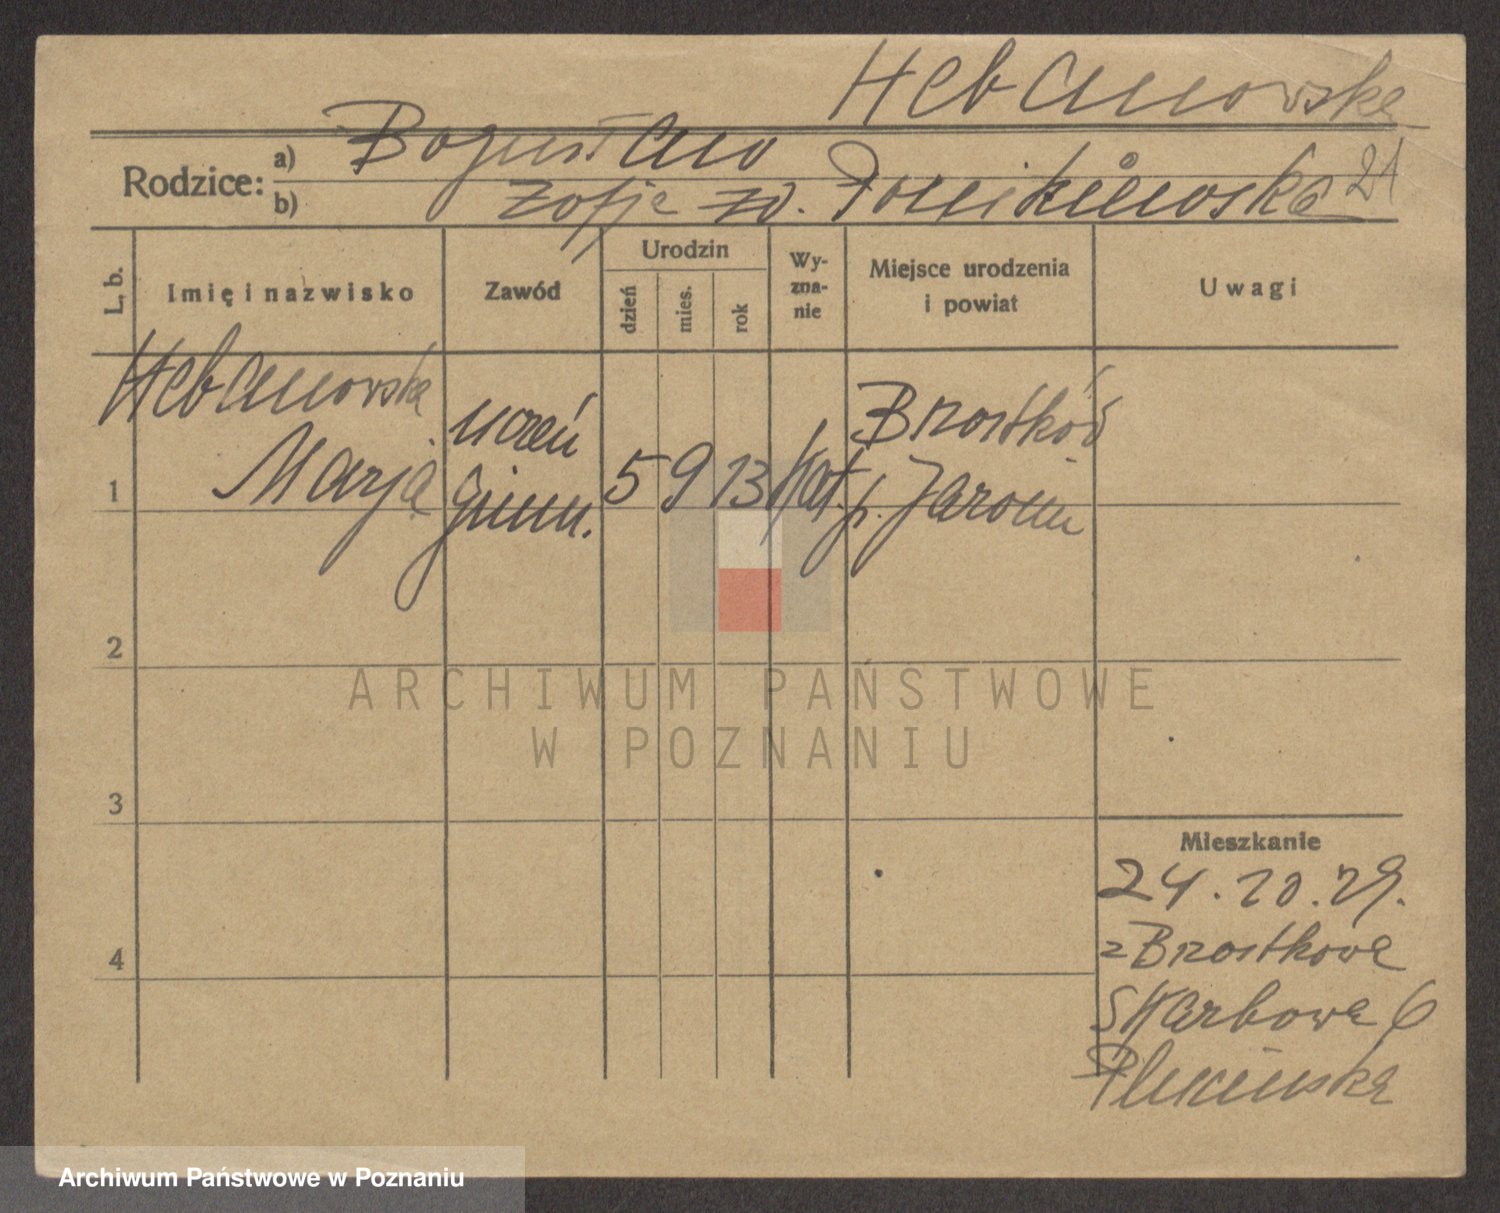 Hebanowska
Rodzice: a) Bogusław
b) Zofja zd. Ponikiewska 21
L. b. Imię i nazwisko Zawód Urodzin dzień mies. rok Wyznanie Miejsce urodzenia i powiat Uwagi
Hebanowska
uczeń Brzostków
1 Marja 5 9 13 kat.
gimn. p. Jarocin
2
ARCHIWUM PAŃSTWOWE
W POZNANIU
3
Mieszkanie
24.10.29.
z Brzostkowa
4
Skarbowa 6
Plucińska
Archiwum Państwowe w Poznaniu